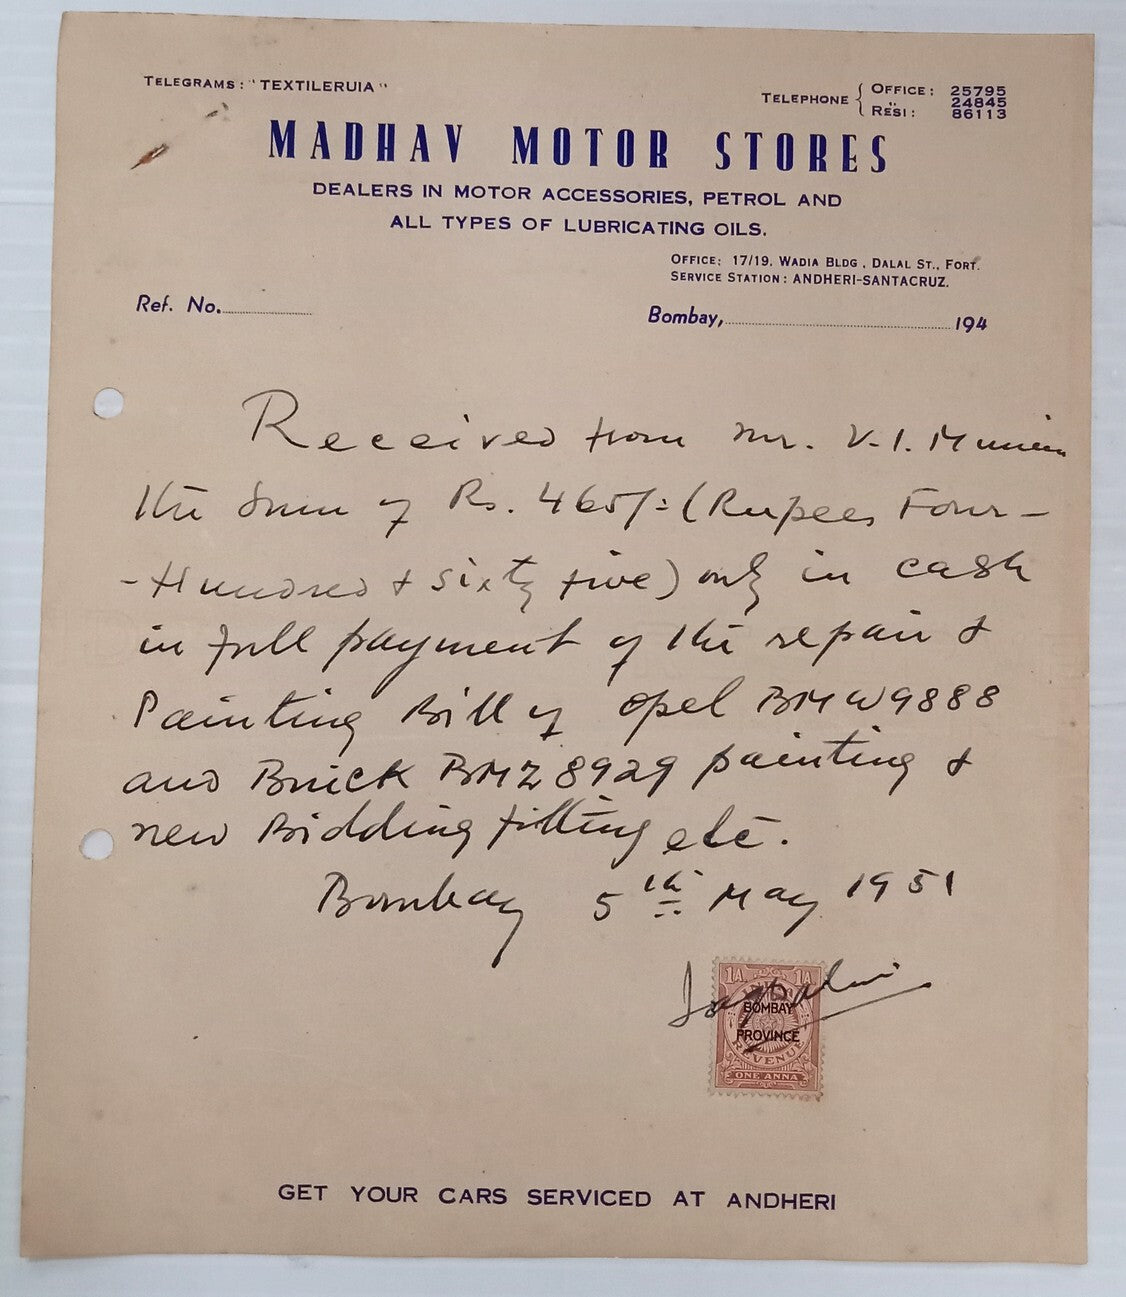 TELEGRAMS: "TEXTILERUIA"
TELEPHONE { OFFICE: 25795
" 24845
RESI: 86113
MADHAV MOTOR STORES
DEALERS IN MOTOR ACCESSORIES, PETROL AND
ALL TYPES OF LUBRICATING OILS.
OFFICE: 17/19, WADIA BLDG., DALAL ST., FORT.
SERVICE STATION: ANDHERI-SANTACRUZ.
Ref. No.
Bombay, 194
Received from Mr. V. I.
the Sum of Rs. 465/= (Rupees Four-
-Hundred & sixty five) only in cash
in full payment of the repair &
Painting Bill of Opel BMW9888
and Buick BMZ 8929 painting &
new Bidding fitting etc.
Bombay 5th May 1951
1A. 1A.
BOMBAY
PROVINCE
REVENUE
ONE ANNA
GET YOUR CARS SERVICED AT ANDHERI